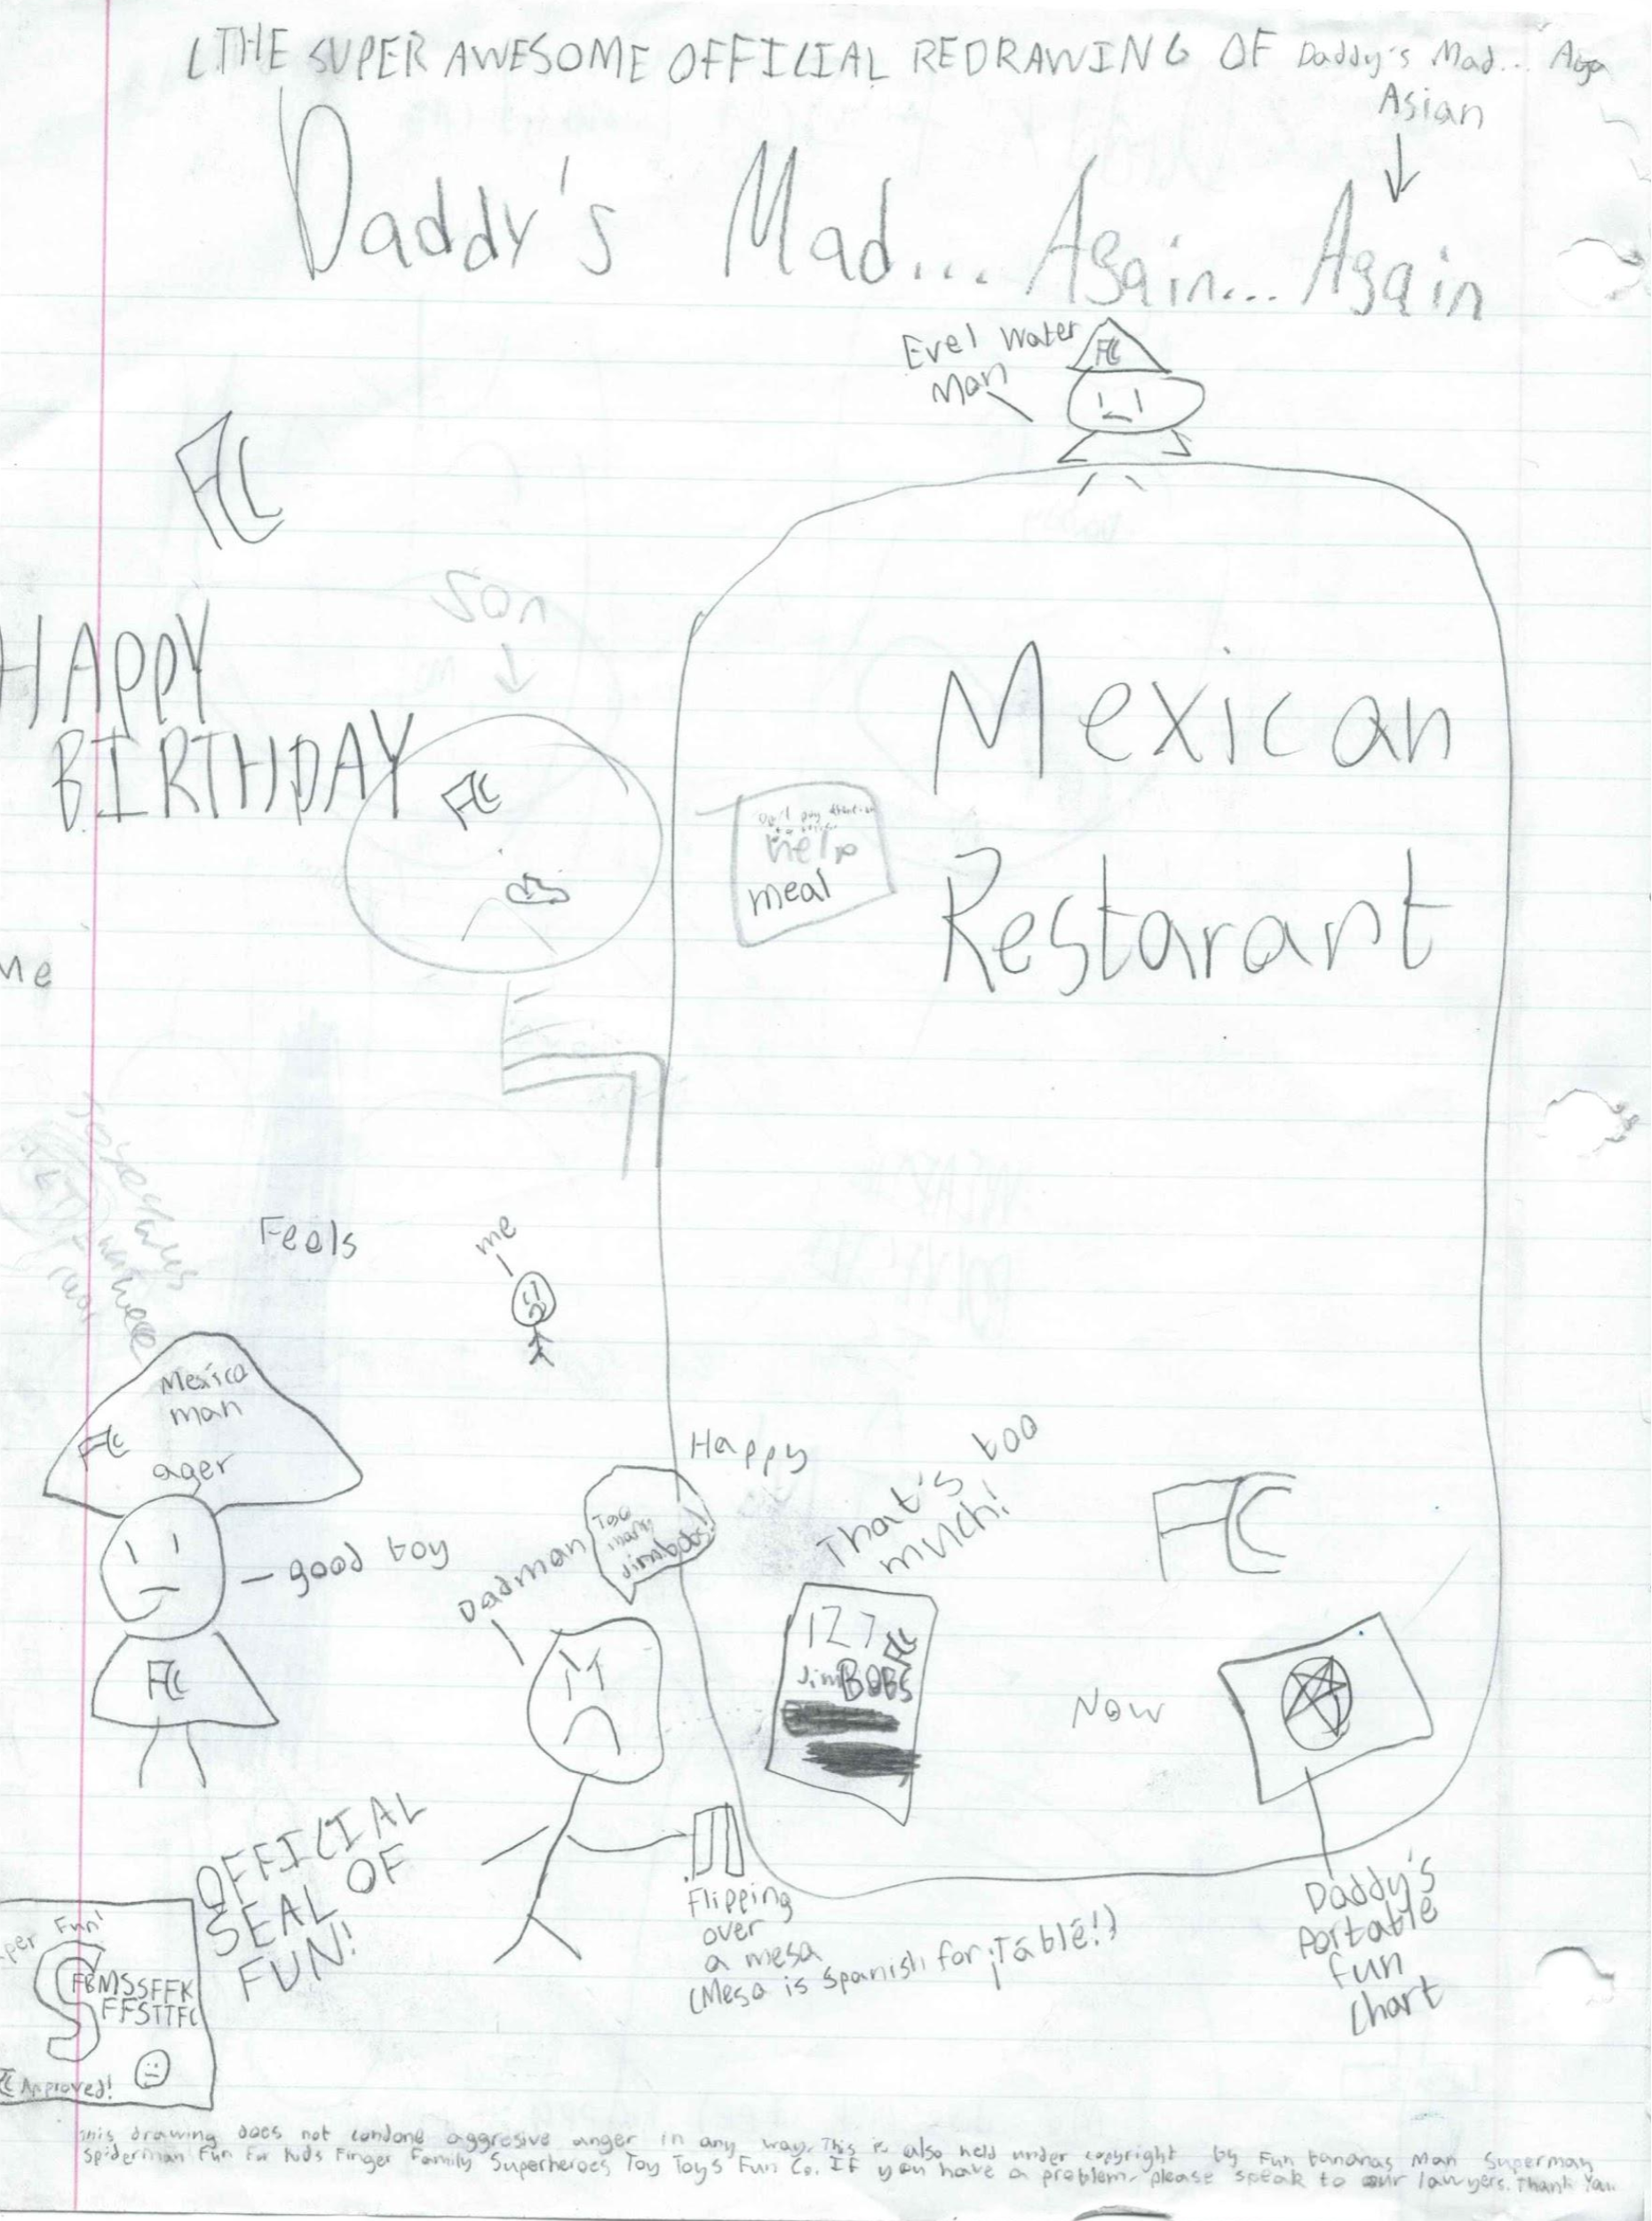 (THE SUPER AWESOME OFFICIAL REDRAWING OF Daddy's Mad... Aga
Asian
Daddy's Mad... Again... Again
Evel Water
Man
FC
FC
Son
HAPPY
BIRTHDAY
FC
Mexican
Restarant
Don't pay
help
meal
me
Feels
me
Mexico
man
ager
FC
good boy
FC
Happy
Dadman
Too
many
Jimbobs!
That's too
mutch!
FC
127
FC
Jim BOBS
Now
OFFICIAL
SEAL OF
FUN!
Flipping
over
a mesa
(Mesa is spanish for ¡Táblé!)
Daddy's
Portable
fun
chart
per Fun!
S
FBMSSFFK
FFSTTFC
Approved!
This drawing does not condone aggresive anger in any way. This is also held under copyright by Fun bananas Man Superman
Spiderman Fun For Kids Finger Family Superheroes Toy Toys Fun Co. If you have a problem, please speak to our lawyers. Thank You.